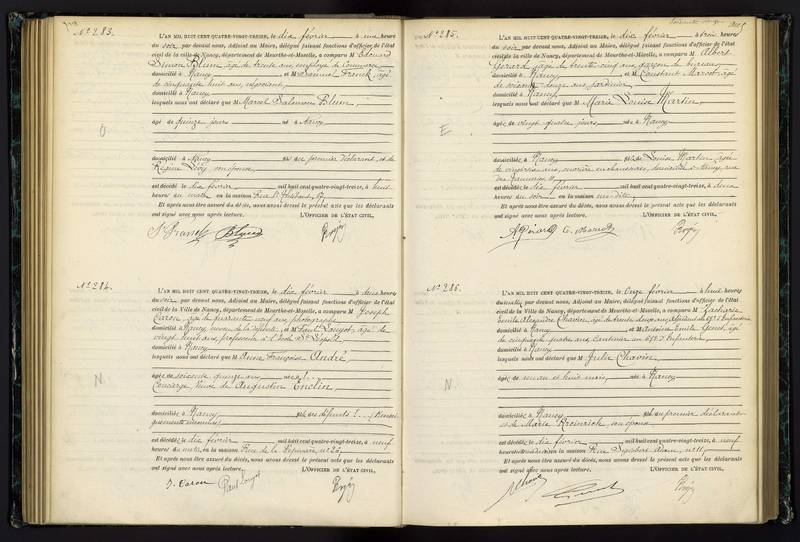 N° 283.
L'AN MIL HUIT CENT QUATRE-VINGT-TREIZE, le dix février à une heure
du soir par devant nous, Adjoint au Maire, délégué faisant fonctions d'officier de l'état
civil de la Ville de Nancy, département de Meurthe-et-Moselle, a comparu M Edouard
Simon Blum, âgé de trente ans, employé de Commerce,
domicilié à Nancy et M Samuel Franck, âgé
de cinquante huit ans, négociant,
domicilié à Nancy,
lesquels nous ont déclaré que M Marcel Salomon Blum,
âgé de quinze jours né à Nancy
domicilié à Nancy fils du premier déclarant, et de
Régine Lévy son épouse,
est décédé le dix février mil huit cent quatre-vingt-treize, à huit
heures du matin en la maison Rue St
Et après nous être assuré du décès, nous avons dressé le présent acte que les déclarants
ont signé avec nous après lecture. L'OFFICIER DE L'ÉTAT CIVIL,
S. Franck Blum
N° 284.
L'AN MIL HUIT CENT QUATRE-VINGT-TREIZE, le dix février à deux heures
du soir, par devant nous, Adjoint au Maire, délégué faisant fonctions d'officier de l'état
civil de la Ville de Nancy, département de Meurthe-et-Moselle, a comparu M Joseph
Caron, âgé de quarante neuf ans, photographe
domicilié à Nancy, et M Paul Louyot, âgé de
vingt huit ans, professeur à l'école St Léopold
domicilié à Nancy
lesquels nous ont déclaré que M Anne Françoise André
âgée de soixante quinze ans née à
Concierge, Veuve de Augustin Enclin
domiciliée à Nancy fille des défunts
est décédée le dix février mil huit cent quatre-vingt-treize, à neuf
heures du matin, en la maison Rue de la Pépinière n° 26
Et après nous être assuré du décès, nous avons dressé le présent acte que les déclarants
ont signé avec nous après lecture. L'OFFICIER DE L'ÉTAT CIVIL,
J. Caron Paul Louyot
N° 285.
L'AN MIL HUIT CENT QUATRE-VINGT-TREIZE, le dix février à trois heures
du soir par devant nous, Adjoint au Maire, délégué faisant fonctions d'officier de l'état
civil de la Ville de Nancy, département de Meurthe-et-Moselle, a comparu M Albert
Gérard, âgé de trente cinq ans, garçon de bureau,
domicilié à Nancy et M Constant Marcot, âgé
de soixante douze ans, jardinier,
domicilié à Nancy,
lesquels nous ont déclaré que M Marie Louise Martin,
âgée de vingt quatre jours née à Nancy
domiciliée à Nancy fille de Louise Martin, âgée
est décédée le dix février mil huit cent quatre-vingt-treize, à deux
heures du soir en la maison susdite,
Et après nous être assuré du décès, nous avons dressé le présent acte que les déclarants
ont signé avec nous après lecture. L'OFFICIER DE L'ÉTAT CIVIL,
A Gérard C. Marcot
N° 286.
L'AN MIL HUIT CENT QUATRE-VINGT-TREIZE, le Onze février à huit heures
du matin par devant nous, Adjoint au Maire, délégué faisant fonctions d'officier de l'état
civil de la Ville de Nancy, département de Meurthe-et-Moselle, a comparu M Zacharie
Emile Alexandre Chavin, âgé de trente
domicilié à Nancy et M Antoine Emile
de cinquante quatre ans, Cantinier au Infanterie,
domicilié à Nancy
lesquels nous ont déclaré que M Julie Chavin
âgée de un an et huit mois, née à Nancy
domiciliée à Nancy fille du premier déclarant
et de Marie Kreinrich, son épouse
est décédée le dix février mil huit cent quatre-vingt-treize, à neuf
heures du soir en la maison Rue n° 11,
Et après nous être assuré du décès, nous avons dressé le présent acte que les déclarants
ont signé avec nous après lecture. L'OFFICIER DE L'ÉTAT CIVIL,